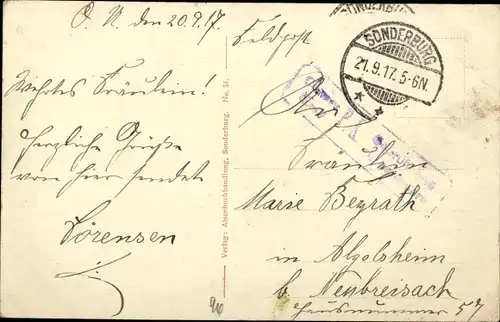 O. U. den 20.9.17.
Wehrtes Fräulein!
Herzliche Grüße
von hier sendet
Sörensen
Verlag: Alsenbuchhandlung, Sonderburg. No. 51.
Feldpost
SONDERBURG
SONDERBURG
21.9.17.5-6N.
An
Fräulein
Marie Beyrath
in Algolsheim
b. Neubreisach
Hausnummer 57